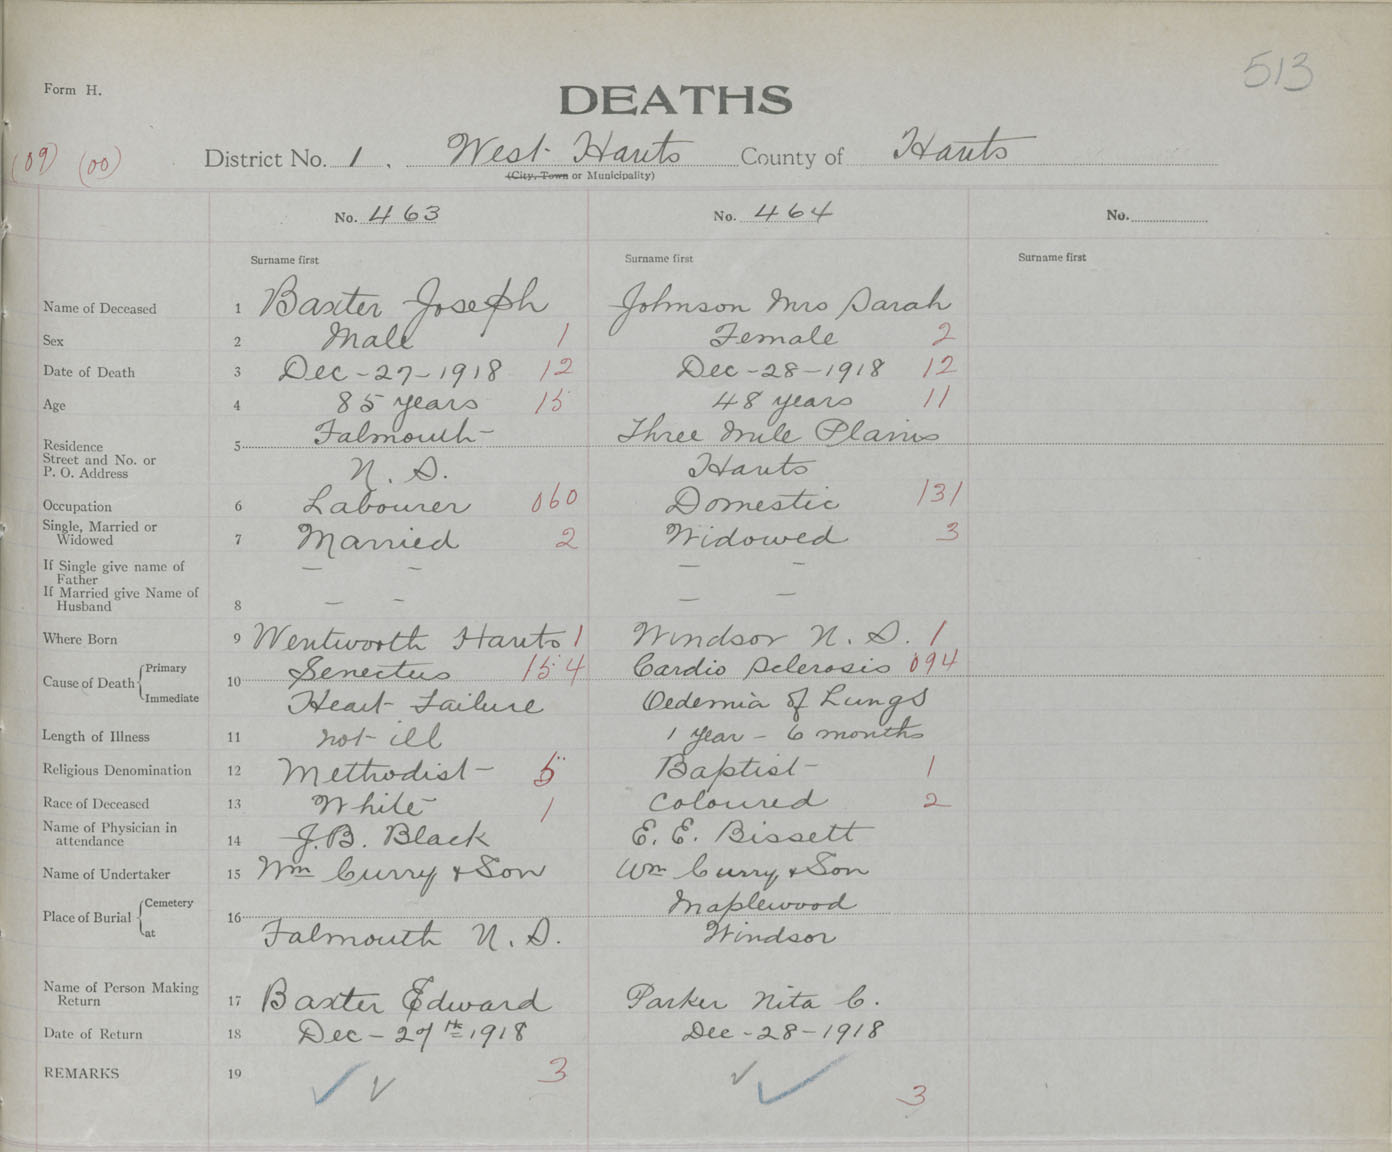 513
Form H.
DEATHS
(09) (00) District No. 1. West Hants County of Hants
(City, Town or Municipality)
No. 463 No. 464 No.
Surname first Surname first Surname first
Name of Deceased 1 Baxter Joseph Johnson Mrs Sarah
Sex 2 Male 1 Female 2
Date of Death 3 Dec-27-1918 12 Dec-28-1918 12
Age 4 85 years 15 48 years 11
Residence 5 Falmouth Three Mile Plains
Street and No. or
P. O. Address N. S. Hants
Occupation 6 Labourer 060 Domestic 131
Single, Married or
Widowed 7 Married 2 Widowed 3
If Single give name of — — — —
Father
If Married give Name of
Husband 8 — — — —
Where Born 9 Wentworth Hants 1 Windsor N. S. 1
Cause of Death Primary 10 Senectus 154 Cardio Sclerosis 094
Immediate Heart Failure Oedemia of Lungs
Length of Illness 11 not ill 1 year - 6 months
Religious Denomination 12 Methodist 5 Baptist 1
Race of Deceased 13 White 1 Coloured 2
Name of Physician in
attendance 14 J.B. Black E. E. Bissett
Name of Undertaker 15 Wm Curry & Son Wm Curry & Son
Place of Burial Cemetery 16 Maplewood
at Falmouth N. S. Windsor
Name of Person Making
Return 17 Baxter Edward Parker Nita C.
Date of Return 18 Dec-27th 1918 Dec-28-1918
REMARKS 19 3 3